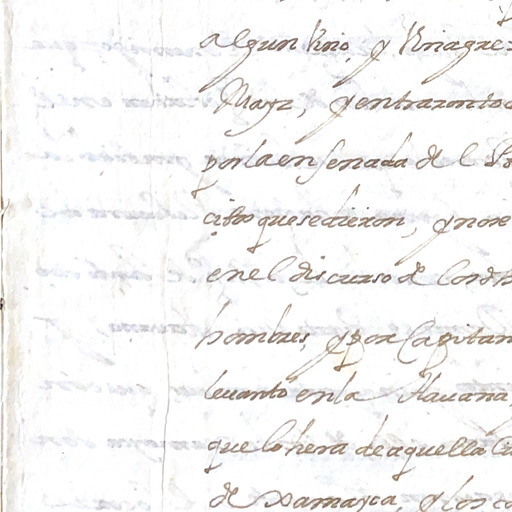 algun Vino, y Vinagre
Mayz, y entraron to
por la ensenada de l
citos que se dieron, y no
en el discurso de los d
hombres, y por Capitan
leuanto en la Hauana
que lo hera de aquella
de Xamayca, y los co